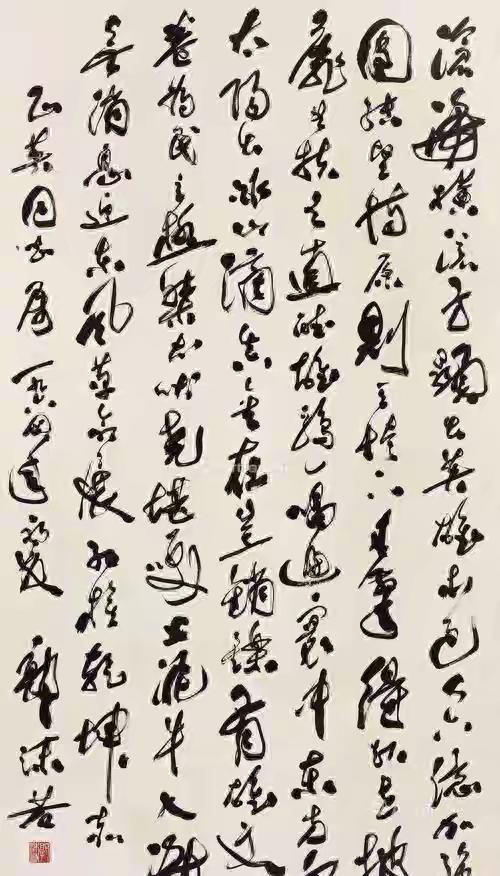 沧海横流方显出英雄本色人六亿加强
团结坚持原则天垮下来擎得起世披
靡矣扶之直听雄鸡一唱遍寰中东方白
太阳出冰山滴真金在岂销铄有雄文
卷为民立极桀犬吠尧堪笑止泥牛入海
无消息迎东风革命展红旗乾坤赤
同志属 郭沫若